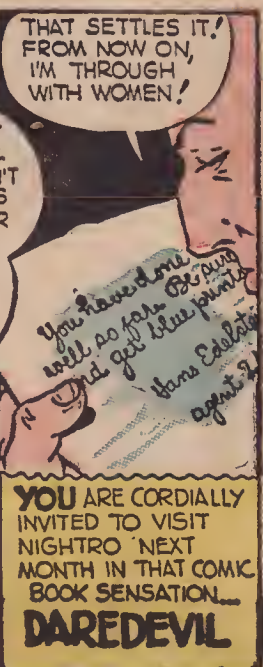 THAT SETTLES IT!
FROM NOW ON,
I'M THROUGH
WITH WOMEN!
You have done
well so far. Be sure
and get blue prints
Hans Edelstein
agent
YOU ARE CORDIALLY
INVITED TO VISIT
NIGHTRO NEXT
MONTH IN THAT COMIC
BOOK SENSATION...
DAREDEVIL